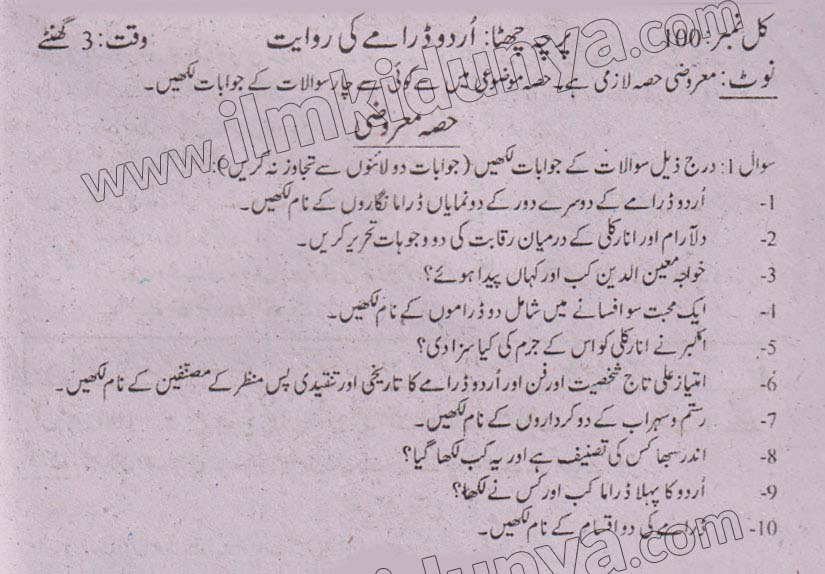 کل نمبر: 100 پرچہ چھٹا: اُردو ڈرامے کی روایت وقت: 3 گھنٹے
نوٹ: معروضی حصہ لازمی ہے۔ حصہ موضوعی میں سے کوئی سے چار سوالات کے جوابات لکھیں۔
حصہ معروضی
سوال 1: درج ذیل سوالات کے جوابات لکھیں (جوابات دو لائنوں سے تجاوز نہ کریں):
1- اُردو ڈرامے کے دوسرے دور کے دو نمایاں ڈراما نگاروں کے نام لکھیں۔
2- دلآرام اور انارکلی کے درمیان رقابت کی دو وجوہات تحریر کریں۔
3- خواجہ معین الدین کب اور کہاں پیدا ہوئے؟
4- ایک محبت سو افسانے میں شامل دو ڈراموں کے نام لکھیں۔
5- اکبر نے انارکلی کو اس کے جرم کی کیا سزا دی؟
6- امتیاز علی تاج شخصیت اور فن اور اُردو ڈرامے کا تاریخی اور تنقیدی پس منظر کے مصنفین کے نام لکھیں۔
7- رستم و سہراب کے دو کرداروں کے نام لکھیں۔
8- اندر سبھا کس کی تصنیف ہے اور یہ کب لکھا گیا؟
9- اُردو کا پہلا ڈراما کب اور کس نے لکھا؟
10- ڈرامے کی دو اقسام کے نام لکھیں۔
www.ilmkidunya.com